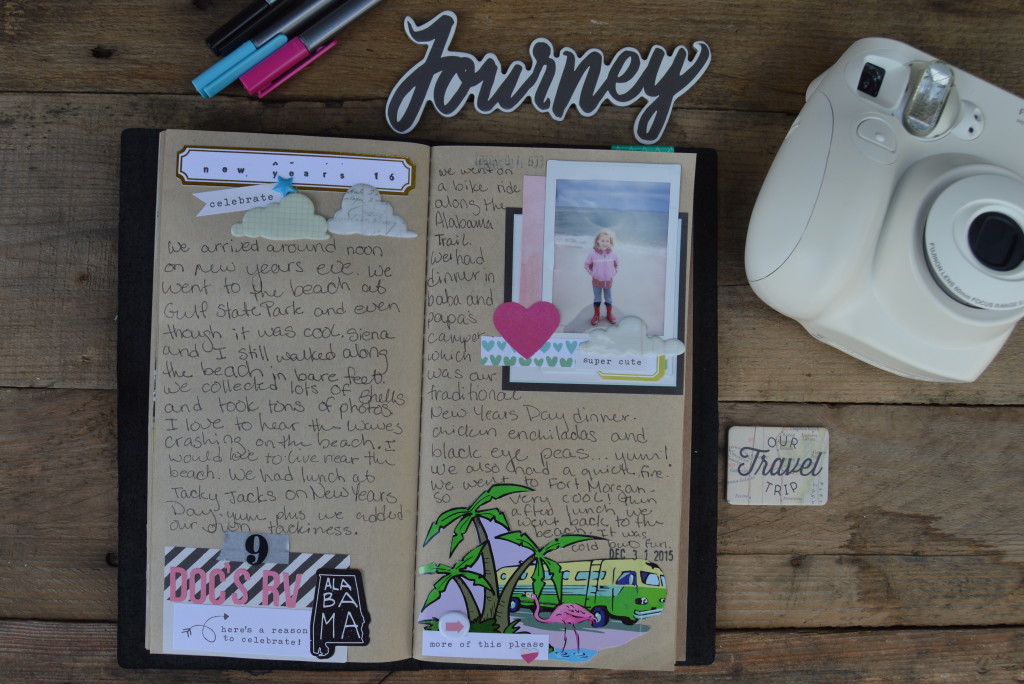 Journey
new years 16
celebrate
we arrived around noon
on new years eve. we
went to the beach at
Gulf State Park and even
though it was cool. Siena
and I still walked along
the beach in bare feet.
we collected lots of shells
and took tons of photos
I love to hear the waves
crashing on the beach. I
would love to live near the
beach. we had lunch at
Tacky Jacks on New Years
Day. yum plus we added
our own tackiness.
9
DOC'S RV
ALA
BA
MA
here's a reason
to celebrate!
we went on
a bike ride
along the
Alabama
Trail.
we had
dinner in
baba and
papa's
camper
which
was our
traditional
New Years Day dinner.
chicken enchiladas and
black eye peas... yum!
we also had a quick fire!
we went to Fort Morgan.
so very cool! then
after lunch we
went back to the
beach. It was
cold but fun.
super cute
DEC 31 2015
more of this please
FUJIFILM LENS 60mm FOCUS RANGE
OUR
Travel
TRIP